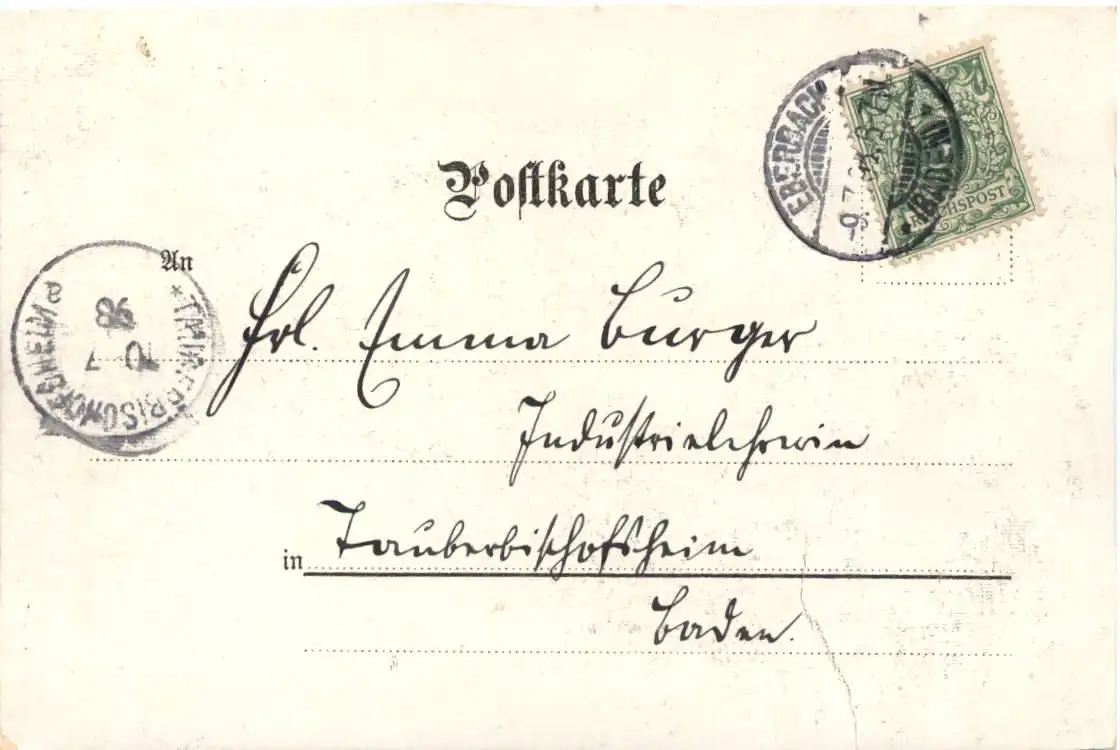 Postkarte
EBERBACH
(BADEN)
REICHSPOST
An
TAUBERBISCHOFSHEIM
98
10 7
Frl. Emma Burger
Industrielehrerin
in Tauberbischofsheim
Baden.